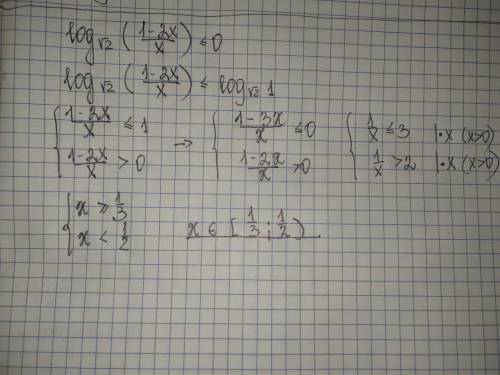 log√2 ( (1-2x)/x ) ≤ 0
log√2 ( (1-2x)/x ) ≤ log√2 1
{ (1-2x)/x ≤ 1 → { (1-3x)/x ≤ 0 { 1/x ≤ 3 |·x (x>0)
(1-2x)/x > 0 (1-2x)/x > 0 1/x > 2 |·x (x>0)
{ x ≥ 1/3
x < 1/2 x ∈ [ 1/3 ; 1/2 )